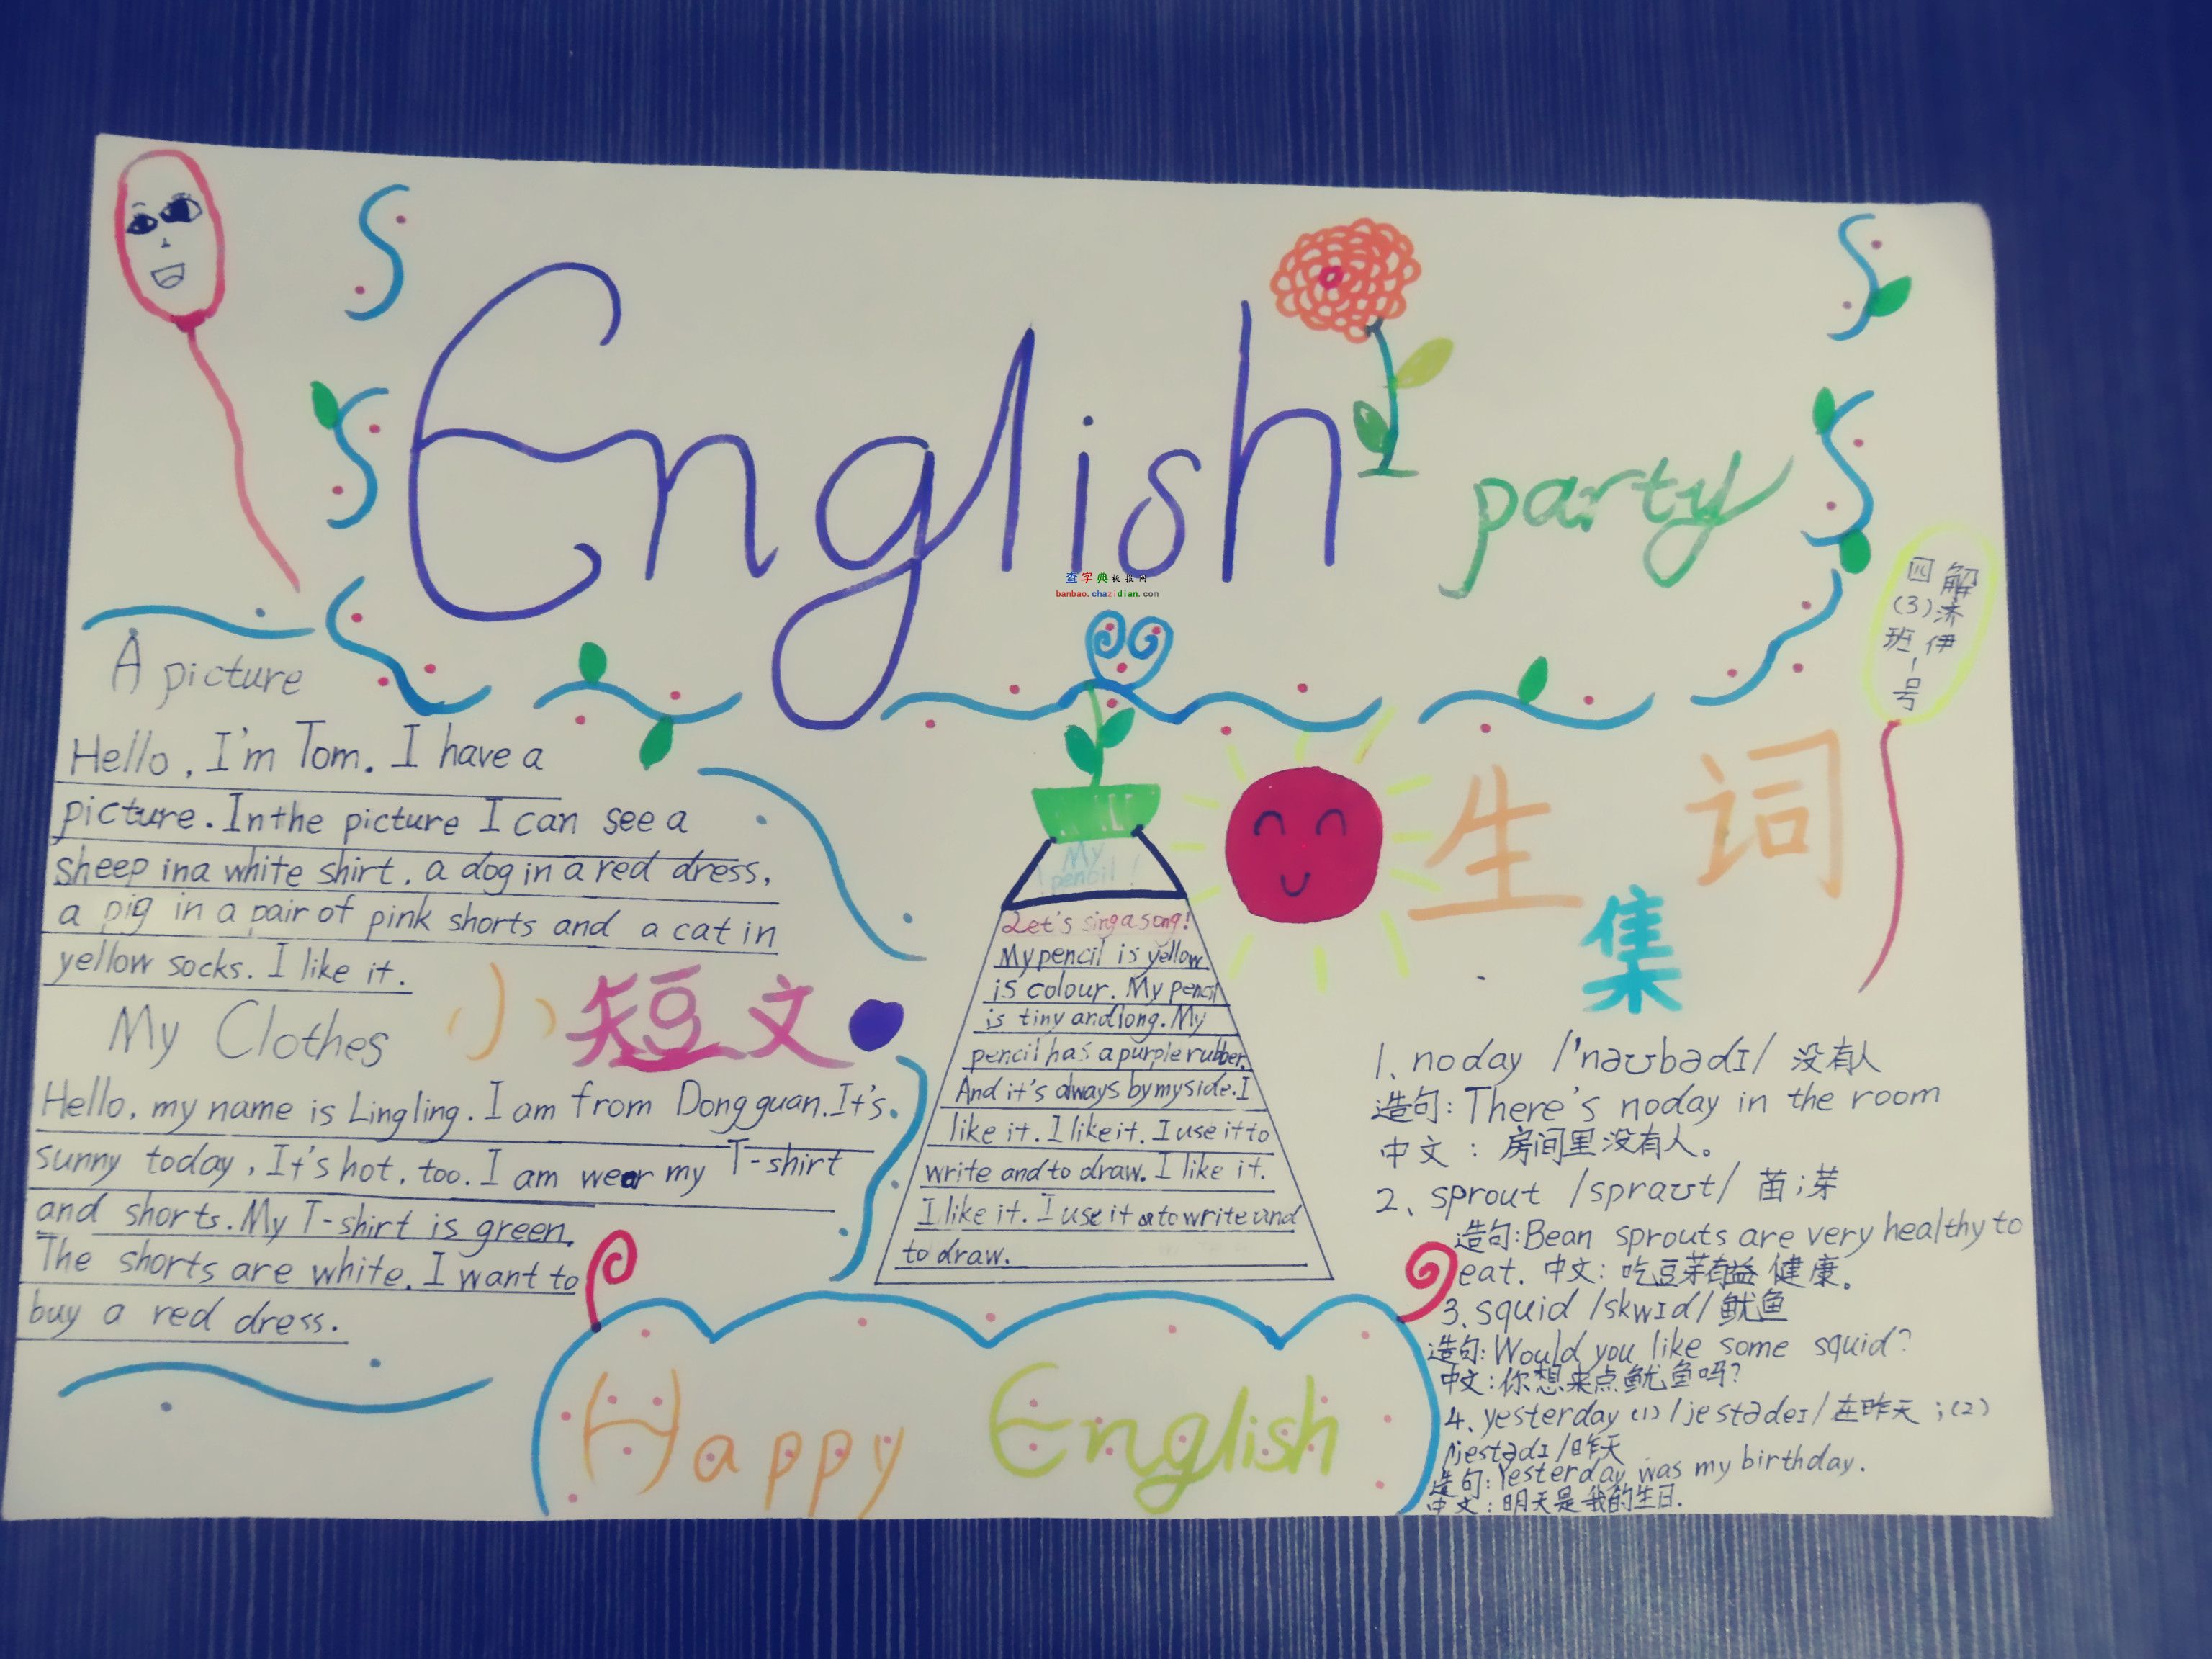 English party
查字典板报网
banbao.chazidian.com
四(3)班1号
解济伊
A picture
Hello, I'm Tom. I have a
picture. In the picture I can see a
sheep in a white shirt, a dog in a red dress,
a pig in a pair of pink shorts and a cat in
yellow socks. I like it.
小短文
My Clothes
Hello, my name is Lingling. I am from Dongguan. It's
sunny today, It's hot, too. I am wear my T-shirt
and shorts. My T-shirt is green.
The shorts are white. I want to
buy a red dress.
My
pencil!
Let's sing a song!
My pencil is yellow
is colour. My pencil
is tiny and long. My
pencil has a purple rubber.
And it's always by my side. I
like it. I like it. I use it to
write and to draw. I like it.
I like it. I use it to write and
to draw.
生词
集
1、noday /'nəʊbədɪ/ 没有人
造句: There's noday in the room
中文: 房间里没有人。
2、sprout /spraʊt/ 苗;芽
造句: Bean sprouts are very healthy to
eat. 中文: 吃豆芽有益健康。
3、squid /skwɪd/ 鱿鱼
造句: Would you like some squid?
中文: 你想来点鱿鱼吗?
4、yesterday (1) /jestədeɪ/ 在昨天;(2)
/jestədɪ/ 昨天
造句: Yesterday was my birthday.
中文: 明天是我的生日.
Happy English